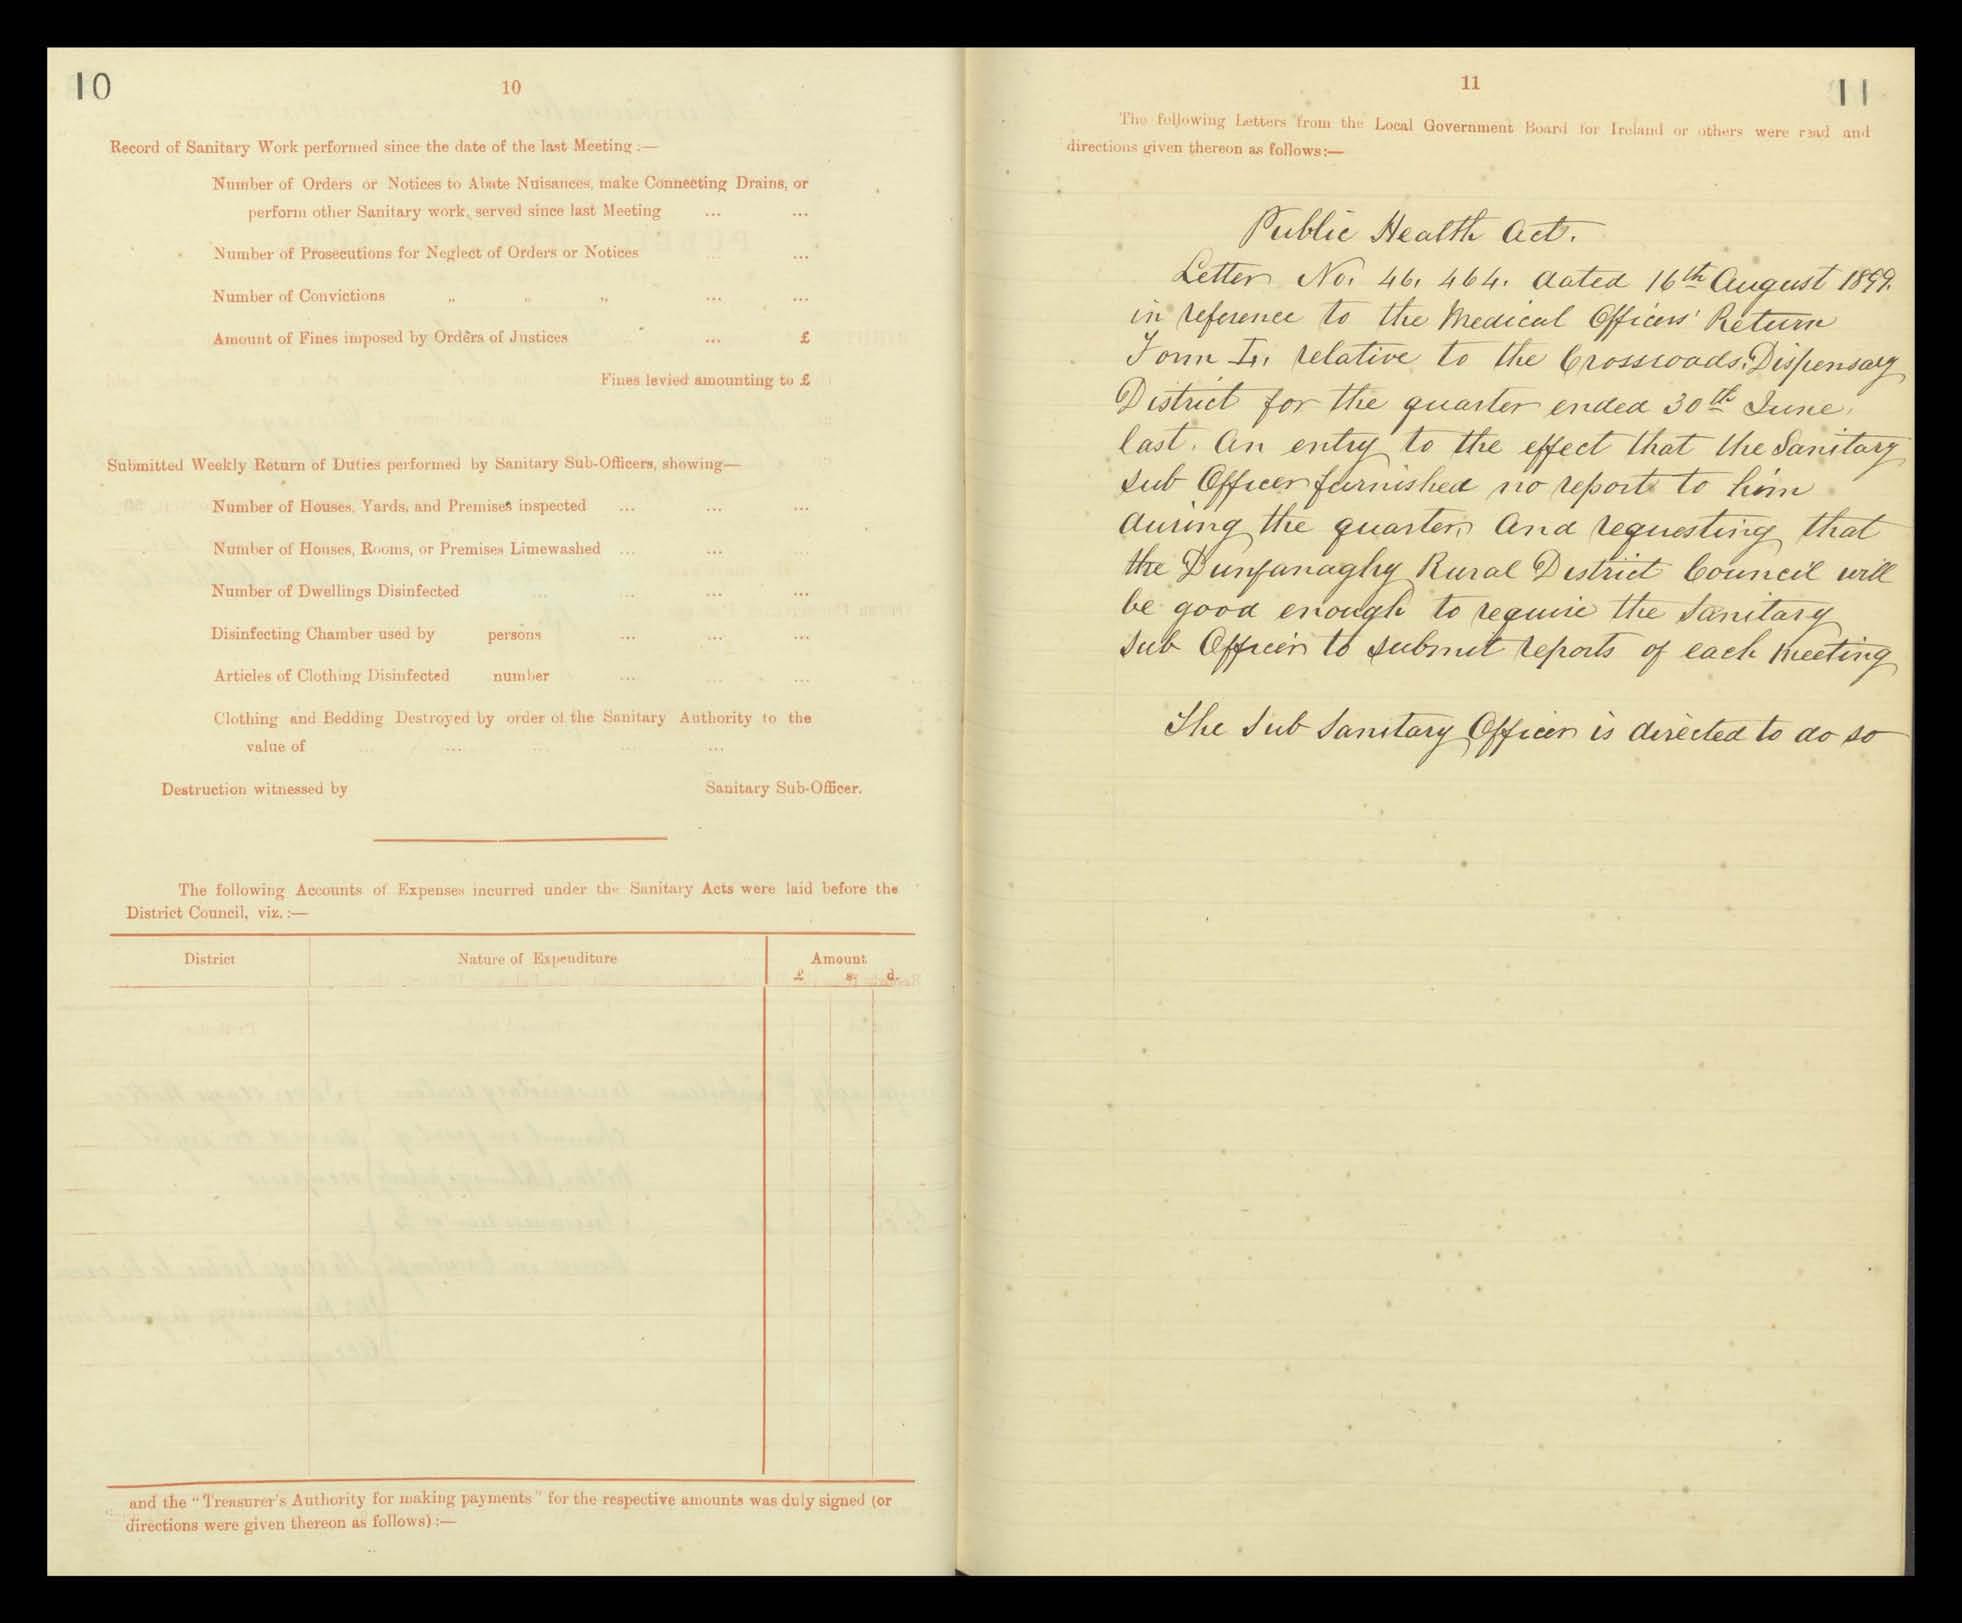 10
10
Record of Sanitary Work performed since the date of the last Meeting :—
Number of Orders or Notices to Abate Nuisances, make Connecting Drains, or
perform other Sanitary work, served since last Meeting ... ...
Number of Prosecutions for Neglect of Orders or Notices ... ...
Number of Convictions „ „ „ ... ...
Amount of Fines imposed by Orders of Justices ... £
Fines levied amounting to £
Submitted Weekly Return of Duties performed by Sanitary Sub-Officers, showing—
Number of Houses, Yards, and Premises inspected ... ... ...
Number of Houses, Rooms, or Premises Limewashed ... ... ...
Number of Dwellings Disinfected ... ... ... ...
Disinfecting Chamber used by persons ... ... ...
Articles of Clothing Disinfected number ... ... ...
Clothing and Bedding Destroyed by order of the Sanitary Authority to the
value of ... ... ... ... ...
Destruction witnessed by Sanitary Sub-Officer.
The following Accounts of Expenses incurred under the Sanitary Acts were laid before the
District Council, viz. :—
District Nature of Expenditure Amount
£ s. d.
and the "Treasurer's Authority for making payments" for the respective amounts was duly signed (or
directions were given thereon as follows) :—
11
11
The following Letters from the Local Government Board for Ireland or others were read and
directions given thereon as follows:—
Public Health Act.
Letter No. 46, 464. dated 16th August 1899.
in reference to the Medical Officers' Return
Form I, relative to the Crossroads Dispensary
District for the quarter ended 30th June
last. An entry to the effect that the Sanitary
Sub Officer furnished no report to him
during the quarter, and requesting that
the Dunfanaghy Rural District Council will
be good enough to require the Sanitary
Sub Officer to submit reports of each meeting
The Sub Sanitary Officer is directed to do so